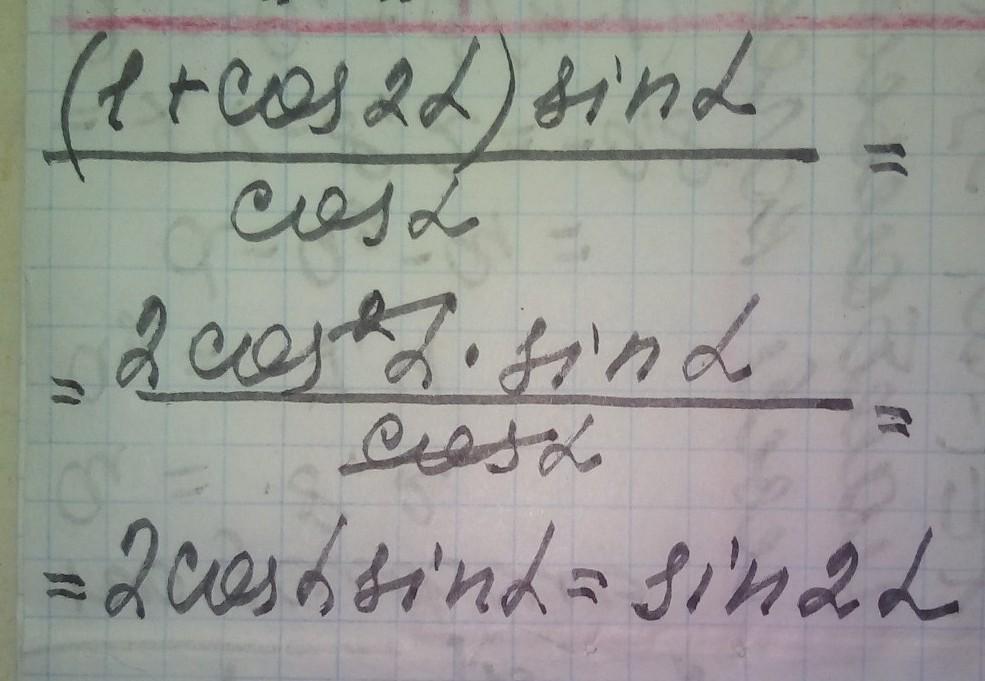 (1+cos2α)sinα
cosα
=
= 2cos²α·sinα
cosα
=
=2cosαsinα=sin2α